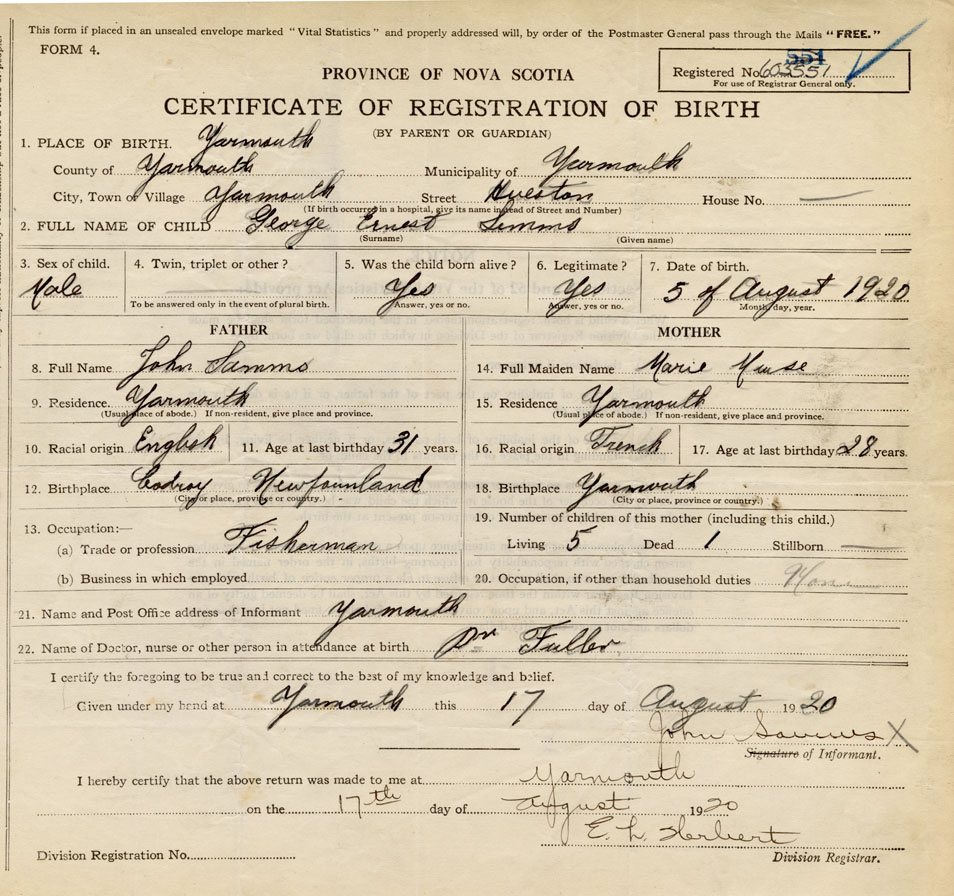 This form if placed in an unsealed envelope marked "Vital Statistics" and properly addressed will, by order of the Postmaster General pass through the Mails "FREE."
FORM 4.
551
Registered No. 603551
For use of Registrar General only.
PROVINCE OF NOVA SCOTIA
CERTIFICATE OF REGISTRATION OF BIRTH
(BY PARENT OR GUARDIAN)
1. PLACE OF BIRTH. Yarmouth
County of Yarmouth Municipality of Yarmouth
City, Town or Village Yarmouth Street Hueston House No. —
(If birth occurred in a hospital, give its name instead of Street and Number)
2. FULL NAME OF CHILD George Ernest Simms
(Surname) (Given name)
3. Sex of child. 4. Twin, triplet or other? 5. Was the child born alive? 6. Legitimate? 7. Date of birth.
Male Yes Yes 5 of August 1920
To be answered only in the event of plural birth. Answer, yes or no. Answer, yes or no. Month, day, year.
FATHER MOTHER
8. Full Name John Samms 14. Full Maiden Name Marie Muse
9. Residence. Yarmouth 15. Residence Yarmouth
(Usual place of abode.) If non-resident, give place and province. (Usual place of abode.) If non-resident, give place and province.
10. Racial origin English 11. Age at last birthday 31 years. 16. Racial origin French 17. Age at last birthday 28 years.
12. Birthplace Codroy Newfounland 18. Birthplace Yarmouth
(City or place, province or country.) (City or place, province or country.)
13. Occupation:— 19. Number of children of this mother (including this child.)
(a) Trade or profession Fisherman Living 5 Dead 1 Stillborn —
(b) Business in which employed 20. Occupation, if other than household duties
21. Name and Post Office address of Informant Yarmouth
22. Name of Doctor, nurse or other person in attendance at birth Dr Fuller
I certify the foregoing to be true and correct to the best of my knowledge and belief.
Given under my hand at Yarmouth this 17 day of August 1920
John Samms X
Signature of Informant.
I hereby certify that the above return was made to me at Yarmouth
on the 17th day of August 1920
E. L. Herbert
Division Registration No. Division Registrar.